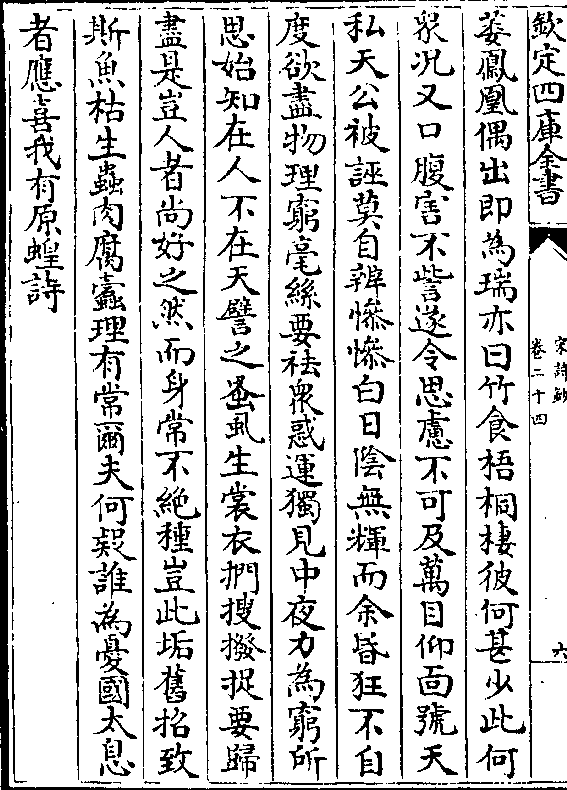 欽定四庫全書
宋詩鈔
卷二十四
六
萎鳳凰偶出即為瑞亦曰竹食梧桐棲彼何甚少此何
衆况又口腹害不訾遂令思慮不可及萬目仰面號天
私天公被誣莫自辨慘慘白日陰無輝而余昏狂不自
度欲盡物理窮毫絲要袪衆惑運獨見中夜力為窮所
思始知在人不在天譬之蚤虱生裳衣捫搜撥捉要歸
盡是豈人者尚好之然而身常不絶種豈此垢舊招致
斯魚枯生蟲肉腐蠹理有常爾夫何疑誰為憂國太息
者應喜我有原蝗詩